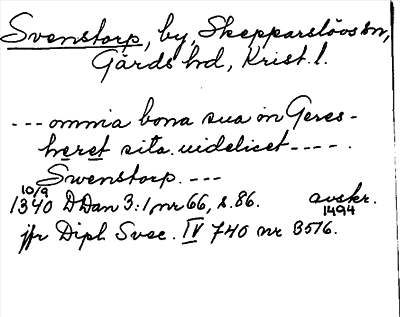 Svenstorp, by, Skepparslövs sn,
Gärds hd, Krist. l.
--- omnia bona sua in Geres-
heret sita. uidelicet ----.
Swenstorp. ---
10/9
1340 DDan 3:1, nr 66, s. 86. avskr.
1494
jfr Dipl. Svec. IV 740 nr 3516.